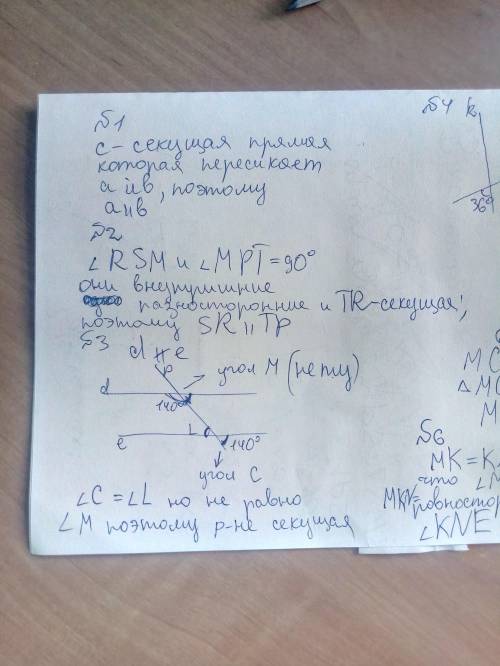 №1
с- секущая прямая
которая пересикает
a и в, поэтому
a ıı в
№2
∠RSM и ∠MPT = 90°
они внутришние
разносторонние и TR-секущая,
поэтому SR ıı TP
№3
d ∦ e
p
угол M (не ту)
d
140°
e
L
140°
угол C
∠C = ∠L но не равно
∠M поэтому p-не секущая
№4
k
36°
MC
△MC
M
№6
MK = K
что ∠M
MKN- ровностор
∠KNE